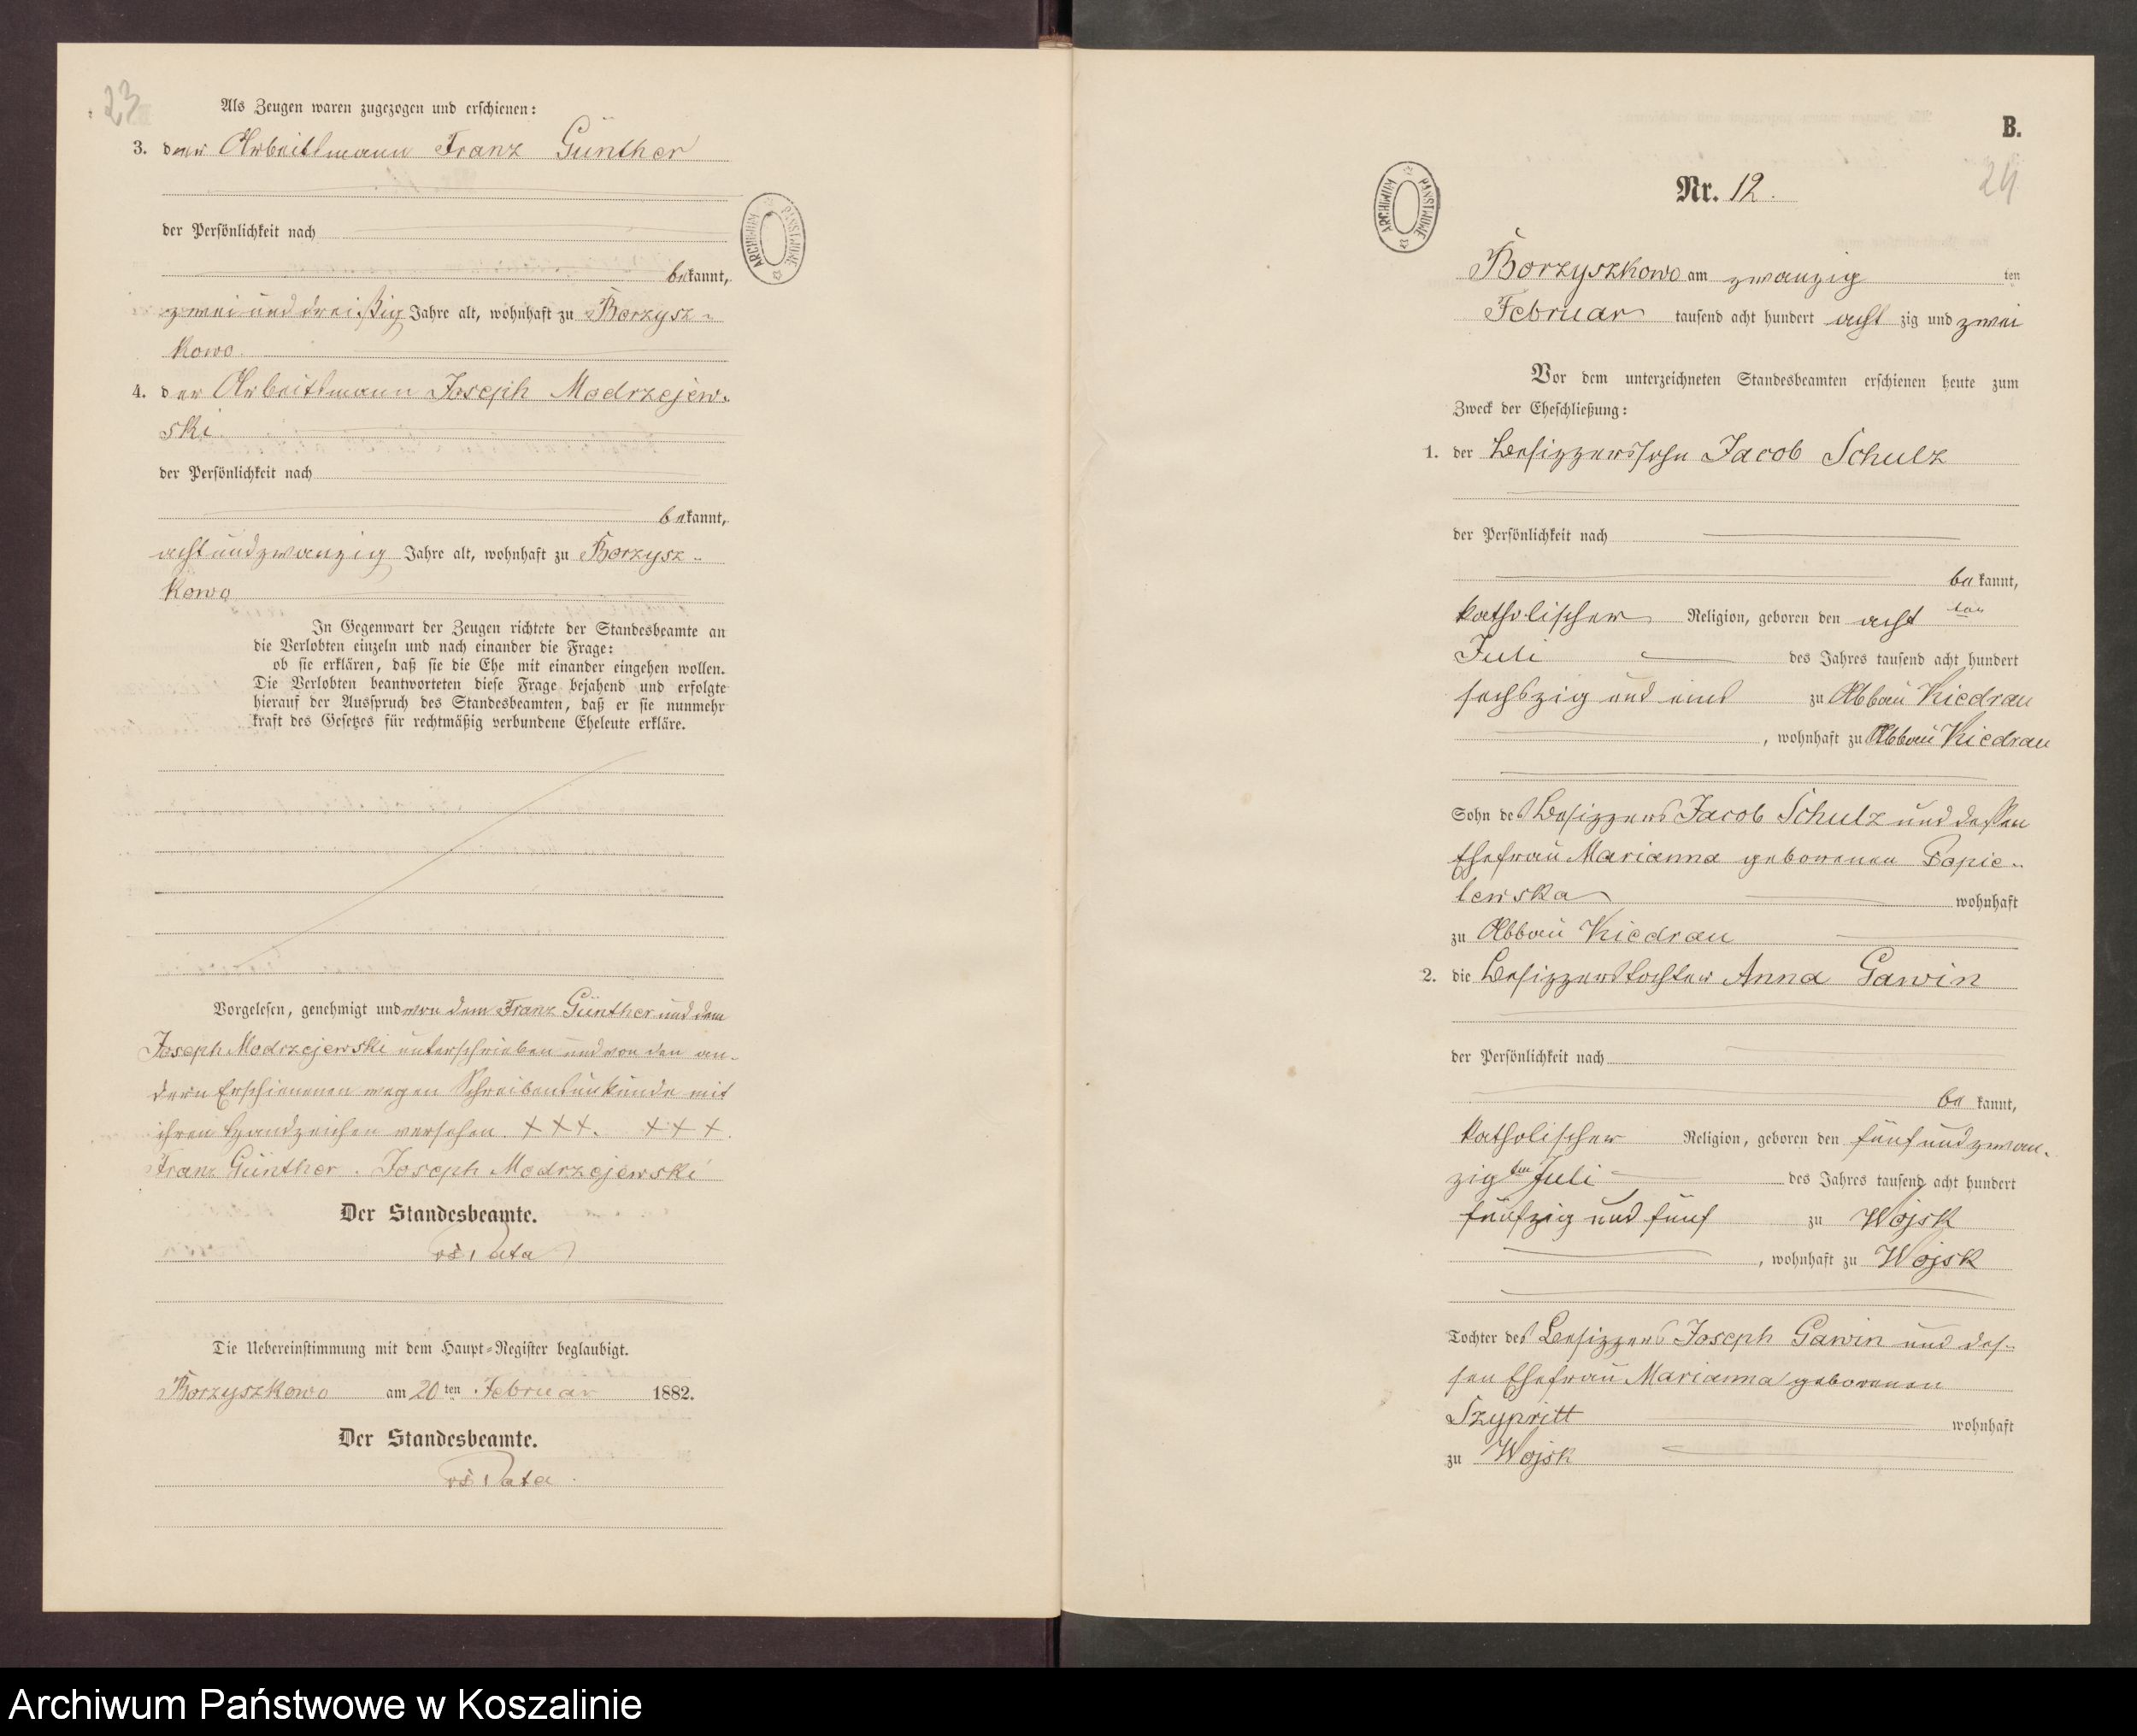 23
Als Zeugen waren zugezogen und erschienen:
3. der Arbeitsmann Franz Günther
der Persönlichkeit nach
bekannt,
zwei und dreißig Jahre alt, wohnhaft zu Borzysz-
kowo.
4. der Arbeitsmann Joseph Modrzejew-
ski.
der Persönlichkeit nach
bekannt,
acht und zwanzig Jahre alt, wohnhaft zu Borzysz-
kowo
In Gegenwart der Zeugen richtete der Standesbeamte an
die Verlobten einzeln und nach einander die Frage:
ob sie erklären, daß sie die Ehe mit einander eingehen wollen.
Die Verlobten beantworteten diese Frage bejahend und erfolgte
hierauf der Ausspruch des Standesbeamten, daß er sie nunmehr
kraft des Gesetzes für rechtmäßig verbundene Eheleute erkläre.
Vorgelesen, genehmigt und von dem Franz Günther und dem
Joseph Modrzejewski unterschrieben und von den an-
dern Erschienenen wegen Schreibensunkunde mit
ihren Handzeichen versehen. +++. +++.
Franz Günther. Joseph Modrzejewski
Der Standesbeamte.
Die Uebereinstimmung mit dem Haupt-Register beglaubigt.
Borzyszkowo am 20ten Februar 1882.
Der Standesbeamte.
ARCHIWUM PAŃSTWOWE
B.
24
Nr. 12.
ARCHIWUM PAŃSTWOWE
Borzyszkowo am zwanzig ten
Februar tausend acht hundert acht zig und zwei
Vor dem unterzeichneten Standesbeamten erschienen heute zum
Zweck der Eheschließung:
1. der Besitzerssohn Jacob Schulz
der Persönlichkeit nach
bekannt,
katholischer Religion, geboren den acht ten
Juli des Jahres tausend acht hundert
sechszig und eins zu Abbau Kiedrau
, wohnhaft zu Abbau Kiedrau
Sohn des Besitzers Jacob Schulz und dessen
Ehefrau Marianna geborenen Popie-
lewska wohnhaft
zu Abbau Kiedrau
2. die Besitzerstochter Anna Gawin
der Persönlichkeit nach
bekannt,
katholischer Religion, geboren den fünf und zwan-
zig ten Juli des Jahres tausend acht hundert
fünfzig und fünf zu Wojsk
, wohnhaft zu Wojsk
Tochter des Besitzers Joseph Gawin und des-
sen Ehefrau Marianna geborenen
Szypritt wohnhaft
zu Wojsk
Archiwum Państwowe w Koszalinie